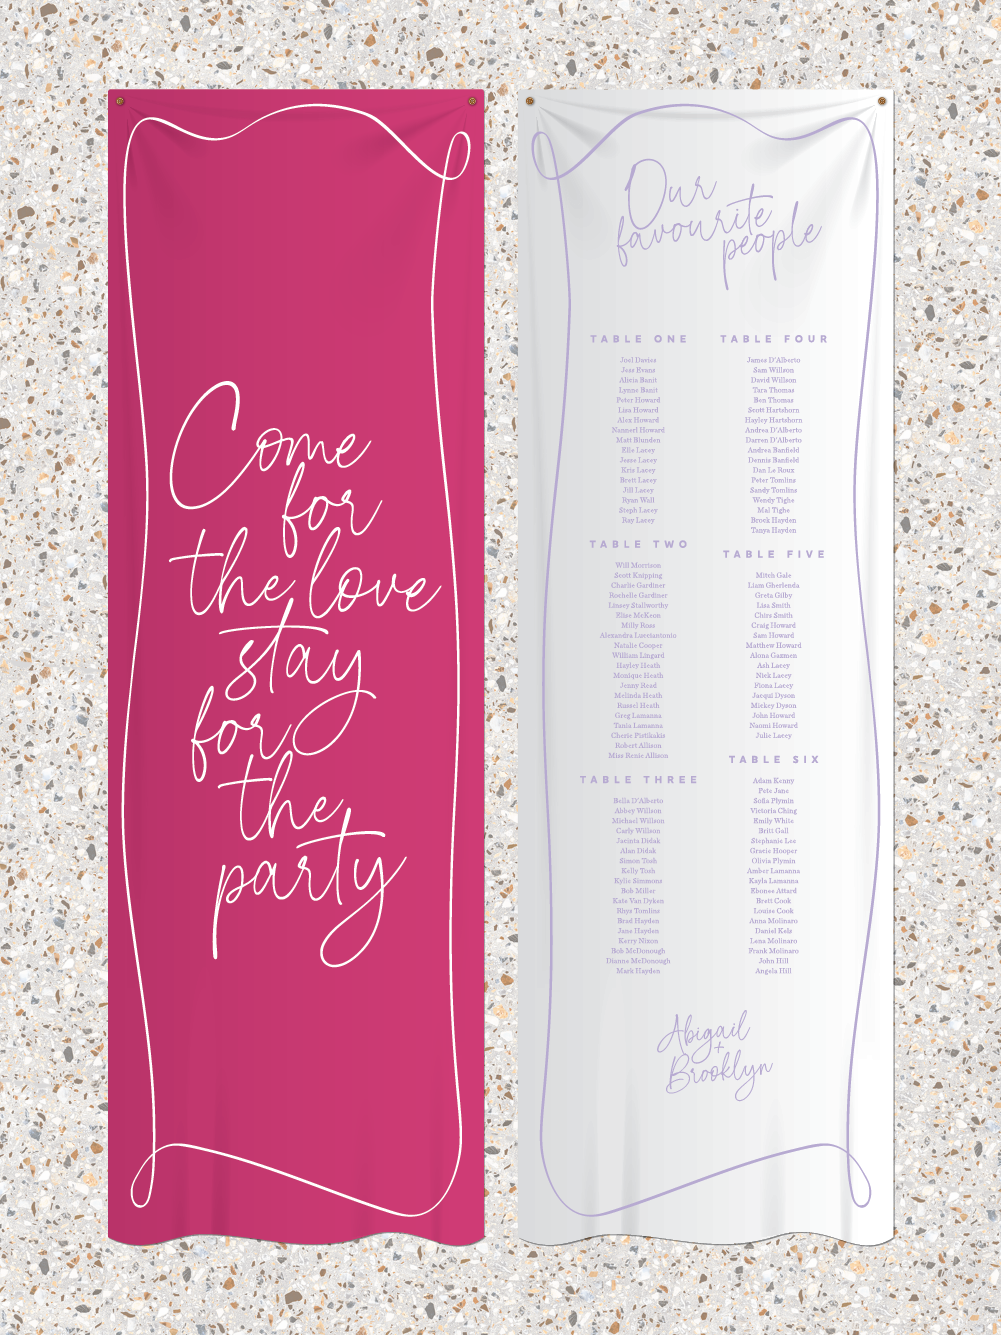 Come
for
the love
stay
for
the
party
Our
favourite
people
TABLE ONE
Joel Davies
Jess Evans
Alicia Banit
Lynne Banit
Peter Howard
Lisa Howard
Alex Howard
Nannerl Howard
Matt Blunden
Elle Lacey
Jesse Lacey
Kris Lacey
Brett Lacey
Jill Lacey
Ryan Wall
Steph Lacey
Ray Lacey
TABLE TWO
Will Morrison
Scott Knipping
Charlie Gardiner
Rochelle Gardiner
Linsey Stallworthy
Elise McKeon
Milly Ross
Alexandra Luccianionio
Natalie Cooper
William Lingard
Hayley Heath
Monique Heath
Jenny Read
Melinda Heath
Russel Heath
Greg Lamanna
Tania Lamanna
Cherie Pistikakis
Robert Allison
Miss Renie Allison
TABLE THREE
Bella D'Alberto
Abbey Willson
Michael Willson
Carly Willson
Jacinta Didak
Alan Didak
Simon Tosh
Kelly Tosh
Kylie Simmons
Bob Miller
Kate Van Dyken
Rhys Tomlins
Brad Hayden
Jane Hayden
Kerry Nixon
Bob McDonough
Dianne McDonough
Mark Hayden
TABLE FOUR
James D'Alberto
Sam Willson
David Willson
Tara Thomas
Ben Thomas
Scott Hartshorn
Hayley Hartshorn
Andrea D'Alberto
Darren D'Alberto
Andrea Banfield
Dennis Banfield
Dan Le Roux
Peter Tomlins
Sandy Tomlins
Wendy Tighe
Mal Tighe
Brock Hayden
Tanya Hayden
TABLE FIVE
Mitch Gale
Liam Gherlenda
Greta Gilby
Lisa Smith
Chira Smith
Craig Howard
Sam Howard
Matthew Howard
Alona Gazmen
Ash Lacey
Nick Lacey
Fiona Lacey
Jacqui Dyson
Mickey Dyson
John Howard
Naomi Howard
Julie Lacey
TABLE SIX
Adam Kenny
Pete Jane
Sofia Plymin
Victoria Ching
Emily White
Britt Gall
Stephanie Lee
Gracie Hooper
Olivia Plymin
Amber Lamanna
Kayla Lamanna
Ebonee Attard
Brett Cook
Louise Cook
Anna Molinaro
Daniel Kelz
Lena Molinaro
Frank Molinaro
John Hill
Angela Hill
Abigail
+
Brooklyn